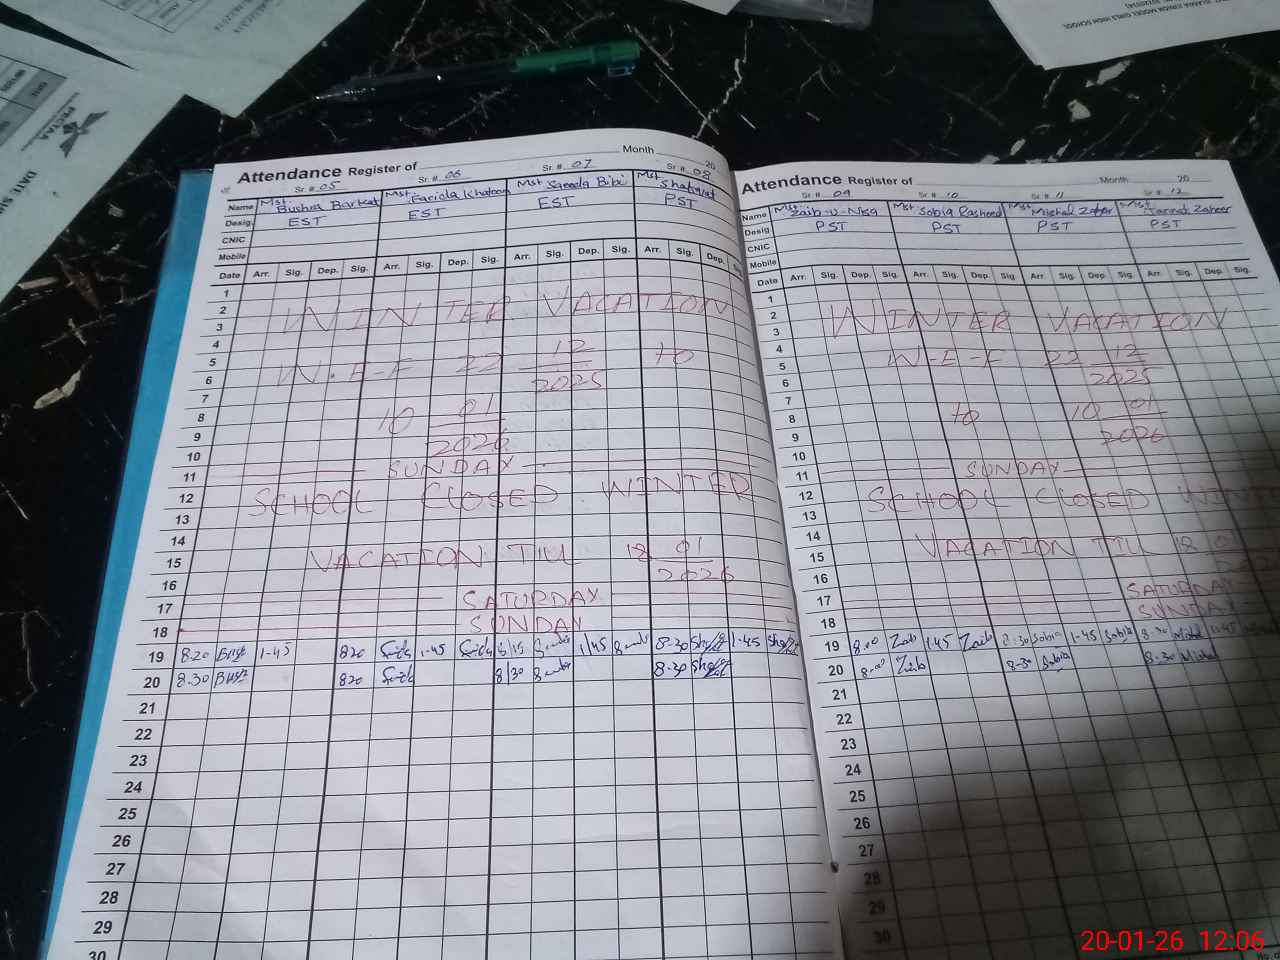 ISLAMIA JINNAH MODEL GIRLS HIGH SCHOOL
PECTAA
Attendance Register of
Month 20
Sr # 05 Sr # 06 Sr # 07 Sr # 08
Name Mst Bushra Barkat Mst Farida Khatoon Mst Saeeda Bibi Mst Shafqat
Desig. EST EST EST PST
CNIC
Mobile
Date Arr. Sig. Dep. Sig. Arr. Sig. Dep. Sig. Arr. Sig. Dep. Sig. Arr. Sig. Dep.
1
2 WINTER VACATION
3
4
5 W.E-F 22 12 2025 to
6
7
8 10 01 2026
9
10
11 SUNDAY
12 SCHOOL CLOSED WINTER
13
14
15 VACATION TILL 18 01 2026
16
17 SATURDAY
18 SUNDAY
19 8.20 1-45 820 1-45 8 15 1 45 8-30 1-45
20 8.30 820 8 30 8-30
21
22
23
24
25
26
27
28
29
30
Attendance Register of
Month 20
Sr # 09 Sr # 10 Sr # 11 Sr # 12
Name Mst Zaib-u-Nisa Mst Sobia Rasheed Mst Mishal Zafar Mst Jannat Zaheer
Desig. PST PST PST PST
CNIC
Mobile
Date Arr. Sig. Dep. Sig. Arr. Sig. Dep. Sig. Arr. Sig. Dep. Sig. Arr. Sig. Dep. Sig.
1
2 WINTER VACATION
3
4
5 W-E-F 22 12 2025
6
7
8 to 10 01 2026
9
10
11 SUNDAY
12 SCHOOL CLOSED
13
14
15 VACATION TILL 18 01
16
17 SATURDAY
18 SUNDAY
19 8.00 Zaib 1.45 Zaib 8:30 Sobia 1-45 Sobia 8-30 Mishal
20 8.00 Zaib 8-30 Sobia 8-30 Mishal
21
22
23
24
25
26
27
28
29
30
20-01-26 12:06